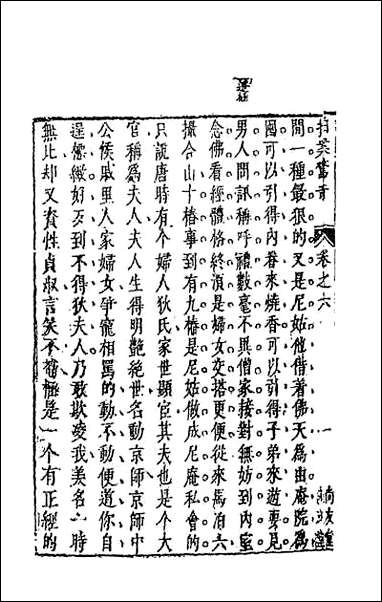 拍案驚奇 卷之六 一 尚友堂
間一種最狠的又是尼姑他借着佛天爲由庵院爲
囤可以引得內眷來燒香可以引得子弟來遊耍見
男人問訊稱呼禮數毫不異僧家接對無妨到內室
念佛看經體格終須是婦女交搭更便從來馬泊六
撮合山十樁事到有九樁是尼姑做成尼庵私會的
只說唐時有個婦人狄氏家世顯官其夫也是個大
官稱爲夫人夫人生得明艷絕世名動京師京師中
公侯戚里人家婦女爭寵相罵的動不動便道你自
逞標緻好歹到不得狄夫人乃敢欺凌我美名一時
無比却又資性貞淑言笑不苟極是一個有正經的